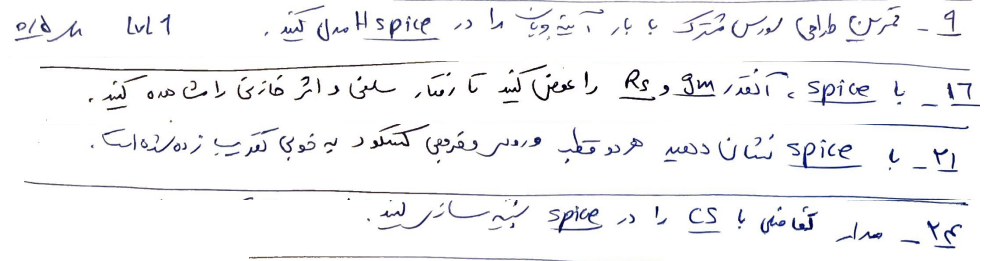 ۹ - تمرین طراحی سورس مشترک با بار آینه جریان را در Hspice مدل کنید. lvl 1
۱۶ - با spice، آنقدر gm و Rs را عوض کنید تا رفتار سلفی و اثر خازنی را مشاهده کنید.
۲۱ - با spice نشان دهید هر دو قطب ورودی و خروجی کسکود به خوبی تقریب زده شده است.
۲۴ - مدار تفاضلی با CS را در spice شبیه سازی کنید.